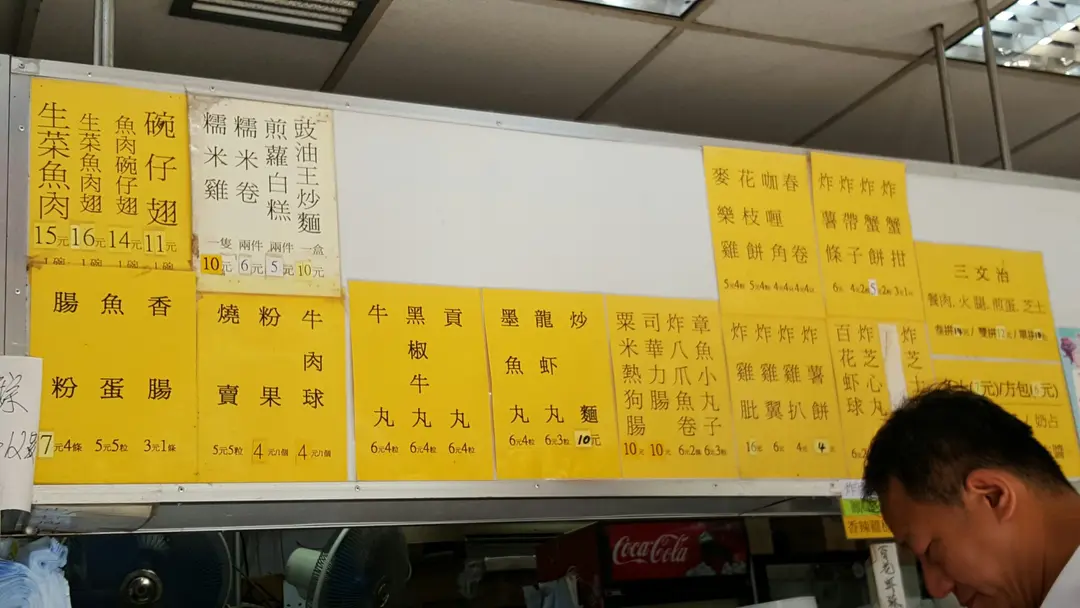 碗仔翅
11元
魚肉碗仔翅
14元
生菜魚肉翅
16元
生菜魚肉
15元
豉油王炒麵
一盒
10元
煎蘿白糕
兩件
5元
糯米卷
兩件
6元
糯米雞
一隻
10元
香腸
3元1條
魚蛋
5元5粒
腸粉
7元4條
牛肉球
4元/1個
粉果
4元/1個
燒賣
5元5粒
貢丸
6元4粒
黑椒牛丸
6元4粒
牛丸
6元4粒
炒麵
10元
龍虾丸
6元3粒
墨魚丸
6元4粒
章魚小丸子
6元3粒
炸八爪魚卷
6元2條
司華力腸
10元
粟米熱狗腸
10元
春卷
咖喱角
花枝餅
麥樂雞
炸蟹拑
炸蟹餅
炸帶子
炸薯條
炸薯餅
4元
炸雞扒
4元
炸雞翼
6元
炸雞肶
16元
炸芝心丸
百花虾球
三文治
餐肉.火腿.煎蛋.芝士
方包
奶占
Coca-Cola